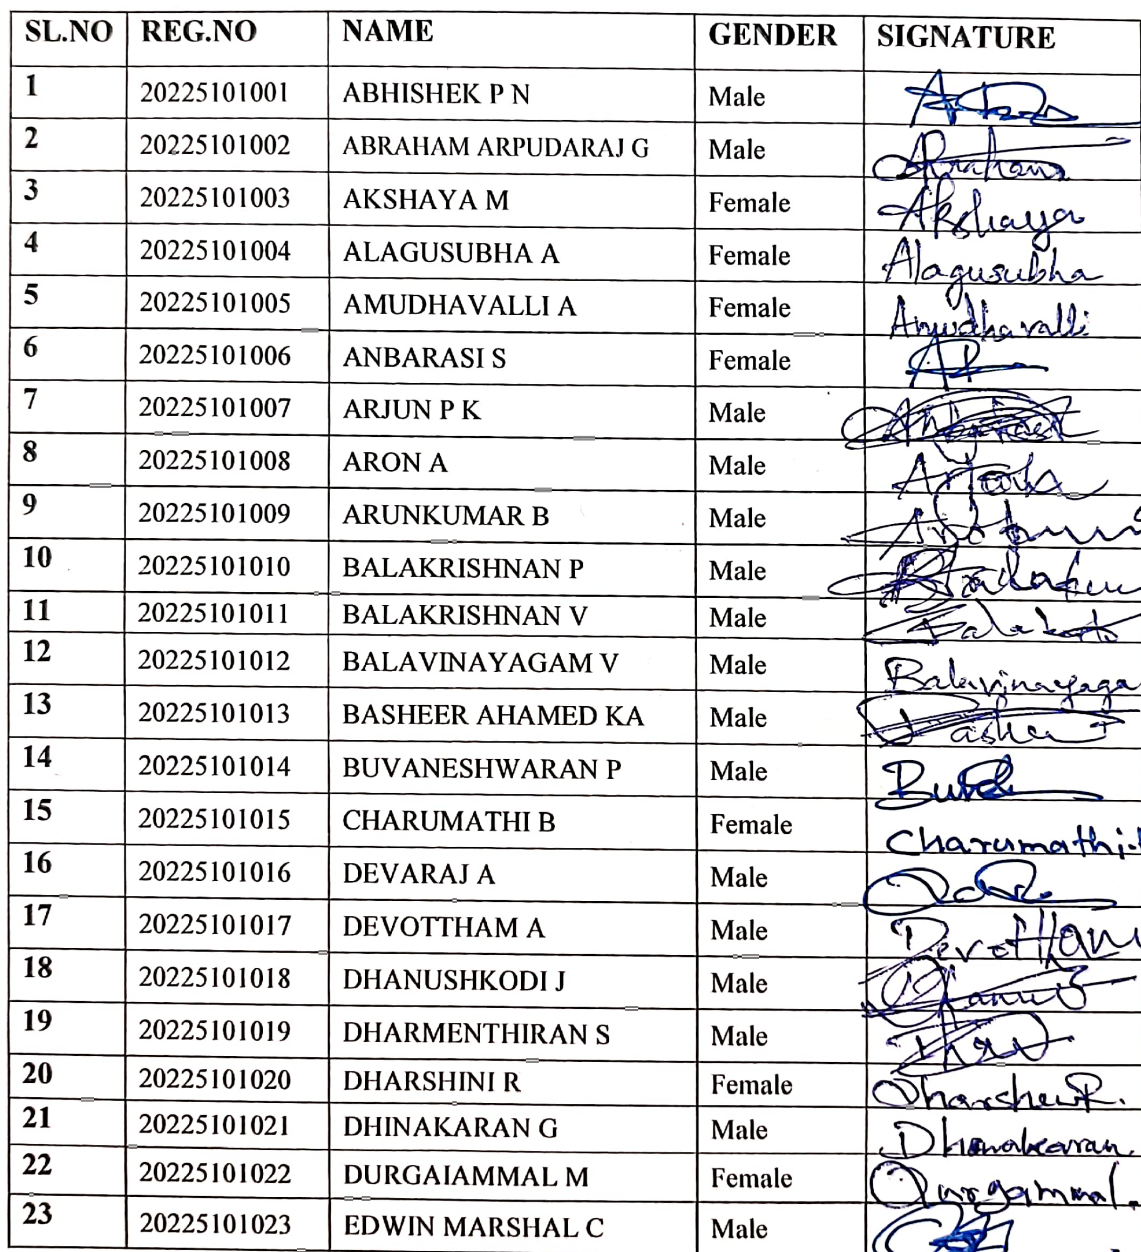 SL.NO REG.NO NAME GENDER SIGNATURE
1 20225101001 ABHISHEK P N Male
2 20225101002 ABRAHAM ARPUDARAJ G Male Abraham
3 20225101003 AKSHAYA M Female Akshaya
4 20225101004 ALAGUSUBHA A Female Alagusubha
5 20225101005 AMUDHAVALLI A Female Amudhavalli
6 20225101006 ANBARASI S Female
7 20225101007 ARJUN P K Male
8 20225101008 ARON A Male
9 20225101009 ARUNKUMAR B Male
10 20225101010 BALAKRISHNAN P Male
11 20225101011 BALAKRISHNAN V Male
12 20225101012 BALAVINAYAGAM V Male Balavinayaga
13 20225101013 BASHEER AHAMED KA Male
14 20225101014 BUVANESHWARAN P Male
15 20225101015 CHARUMATHI B Female Charumathi.
16 20225101016 DEVARAJ A Male
17 20225101017 DEVOTTHAM A Male
18 20225101018 DHANUSHKODI J Male
19 20225101019 DHARMENTHIRAN S Male
20 20225101020 DHARSHINI R Female
21 20225101021 DHINAKARAN G Male
22 20225101022 DURGAIAMMAL M Female
23 20225101023 EDWIN MARSHAL C Male